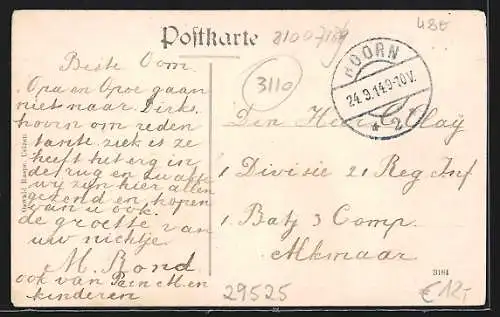 Postkarte
81007189
48E
3110
HOORN
24.9.14 9-10V.
* 2
Beste Oom
Opa en Opoe gaan
niet naar Dirks
hoven om reden
tante ziek is ze
heeft het erg in
de rug en zwakte
wij zijn hier allen
gezond en hopen
van u ook.
de groette van
uw nichtje
M. Bond
ook van Pa en M. en
kinderen
Den Heer C. Olaÿ
1 Divizie 21 Reg Inf
1 Batj 3 Comp.
Alkmaar
3184
29525
€12,-